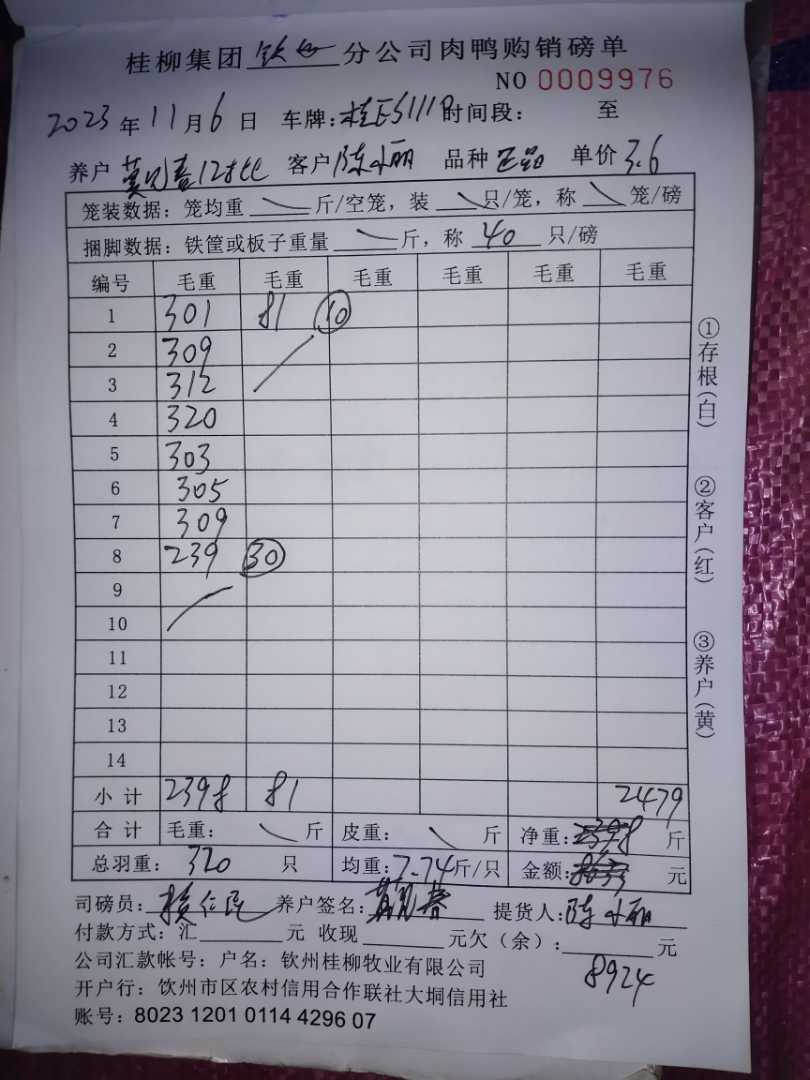 桂柳集团 钦州 分公司肉鸭购销磅单
NO 0009976
2023 年 11 月 6 日 车牌: 时间段: 至
养户 12批 客户 陈小丽 品种 正品 单价 3.6
笼装数据: 笼均重 斤/空笼, 装 只/笼, 称 笼/磅
捆脚数据: 铁筐或板子重量 斤, 称 40 只/磅
编号 毛重 毛重 毛重 毛重 毛重 毛重
1 301 81 10
2 309
3 312
4 320
5 303
6 305
7 309
8 239 30
9
10
11
12
13
14
小计 2398 81 2479
合计 毛重: 斤 皮重: 斤 净重: 2398 斤
总羽重: 320 只 均重: 7.74 斤/只 金额: 元
司磅员: 养户签名: 提货人: 陈小丽
付款方式: 汇 元 收现 元欠(余): 元
8924
公司汇款帐号: 户名: 钦州桂柳牧业有限公司
开户行: 钦州市区农村信用合作联社大垌信用社
账号: 8023 1201 0114 4296 07
①存根(白)
②客户(红)
③养户(黄)